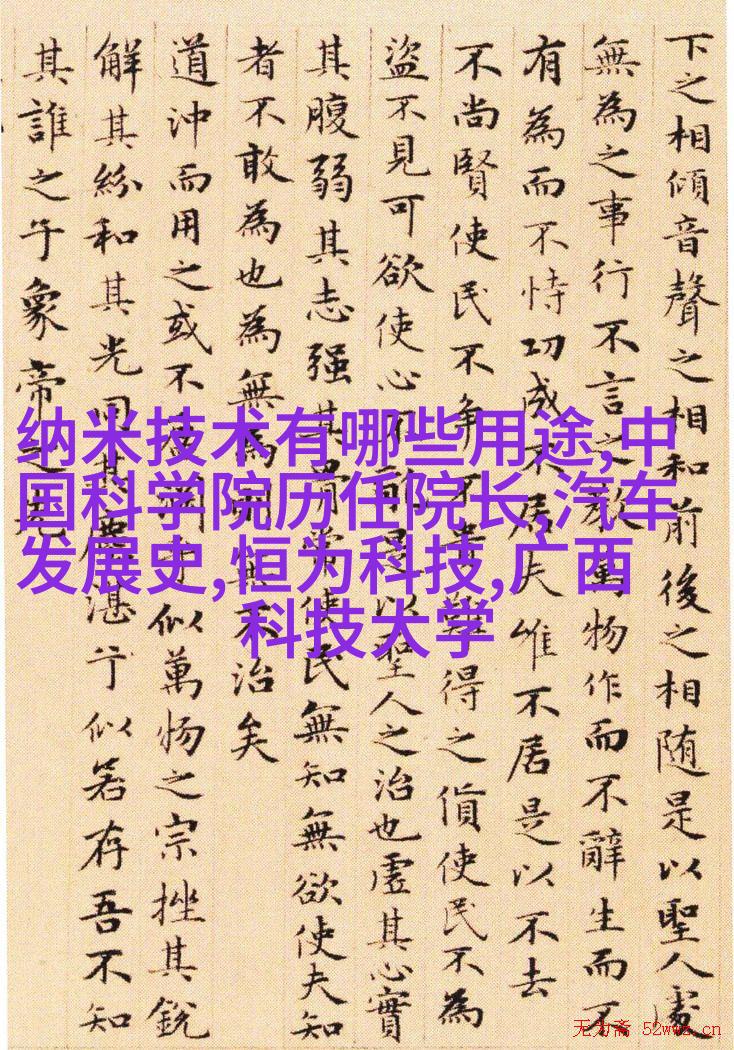 下之相傾音聲之相和前後之相随是以聖人處
無為之事行不言之教萬物作而不辭生而不
有為而不恃功成不居夫唯不居是以不去
不尚賢使民不争不貴難得之貨使民不為
盜不見可欲使心不亂是以聖人之治也虛其心實
其腹弱其志强其骨常使民無知無欲使夫知
者不敢為也為無為則無不治矣
道沖而用之或不盈淵乎似萬物之宗挫其銳
解其紛和其光同其塵湛乎似若存吾不知
其誰之子象帝之先
纳米技术有哪些用途,中
国科学院历任院长,汽车
发展史,恒为科技,广西
科技大学
无为斋 52wwz.cn